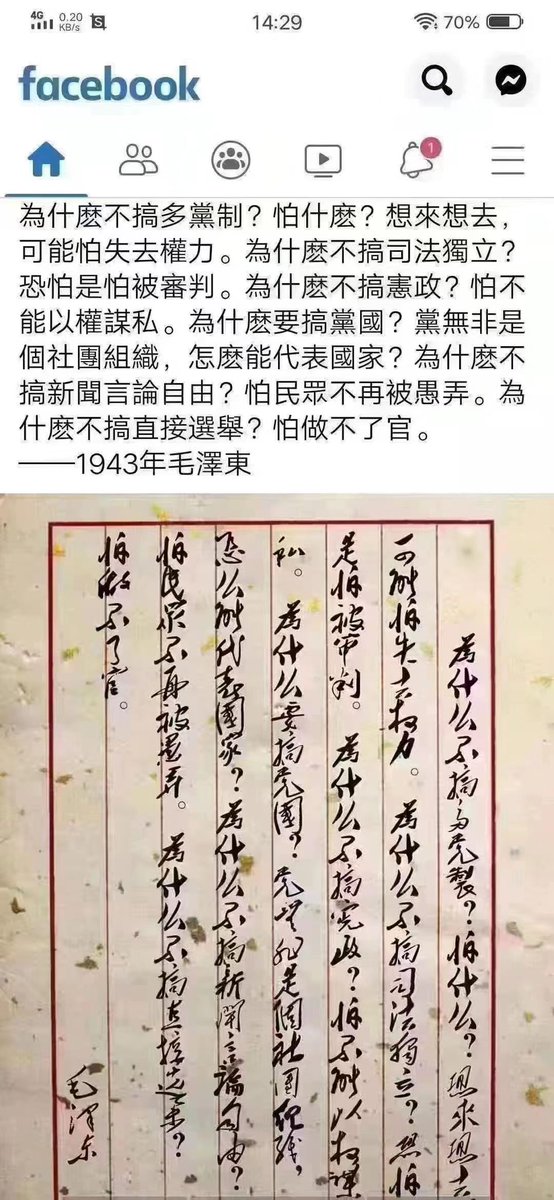 4G 0.20 KB/s 14:29 70%
facebook
1
為什麽不搞多黨制？怕什麽？想來想去，
可能怕失去權力。為什麽不搞司法獨立？
恐怕是怕被審判。為什麽不搞憲政？怕不
能以權謀私。為什麽要搞黨國？黨無非是
個社團組織，怎麽能代表國家？為什麽不
搞新聞言論自由？怕民眾不再被愚弄。為
什麽不搞直接選舉？怕做不了官。
——1943年毛澤東
為什么不搞多党製？怕什么？想來想去
可能怕失去权力。為什么不搞司法獨立？恐怕
是怕被审判。為什么不搞宪政？怕不能以权谋
私。為什么要搞党國？党无非是個社團组织，
怎么能代表國家？為什么不搞新聞言論自由？
怕民众不再被愚弄。為什么不搞直接选举？
怕做不了官。
毛澤东